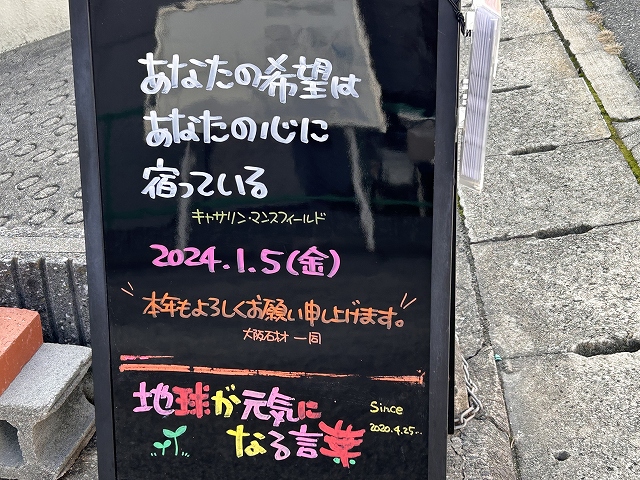 あなたの希望は
あなたの心に
宿っている
キャサリン・マンスフィールド
2024.1.5(金)
本年もよろしくお願い申し上げます。
大阪石材 一同
地球が元気に
なる言葉
Since
2020.4.25...